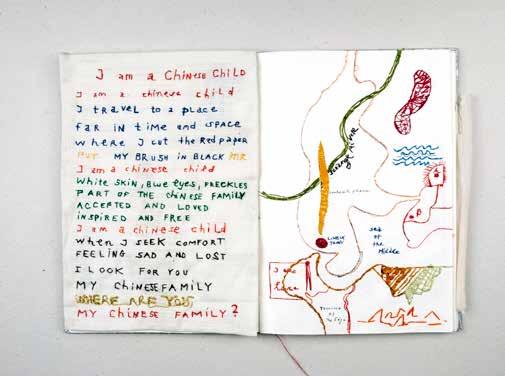 I am a CHINESE CHILD
I am a chinese child
I travel to a place
far in time and space
where I cut the Red paper
PUT MY BRUSH IN BLACK INK
I am a chinese child
White SKIN, BLUE EYES, FRECKLES
PART OF THE CHINESE FAMILY
ACCEPTED AND LOVED
INSPIRED AND FREE
I am a chinese child
When I SEEK COMFORT
FEELING SAD AND LOST
I LOOK FOR YOU
MY CHINESE FAMILY
WHERE ARE YOU
MY CHINESE FAMILY?
LONELY
sea
of the
Middle
I am